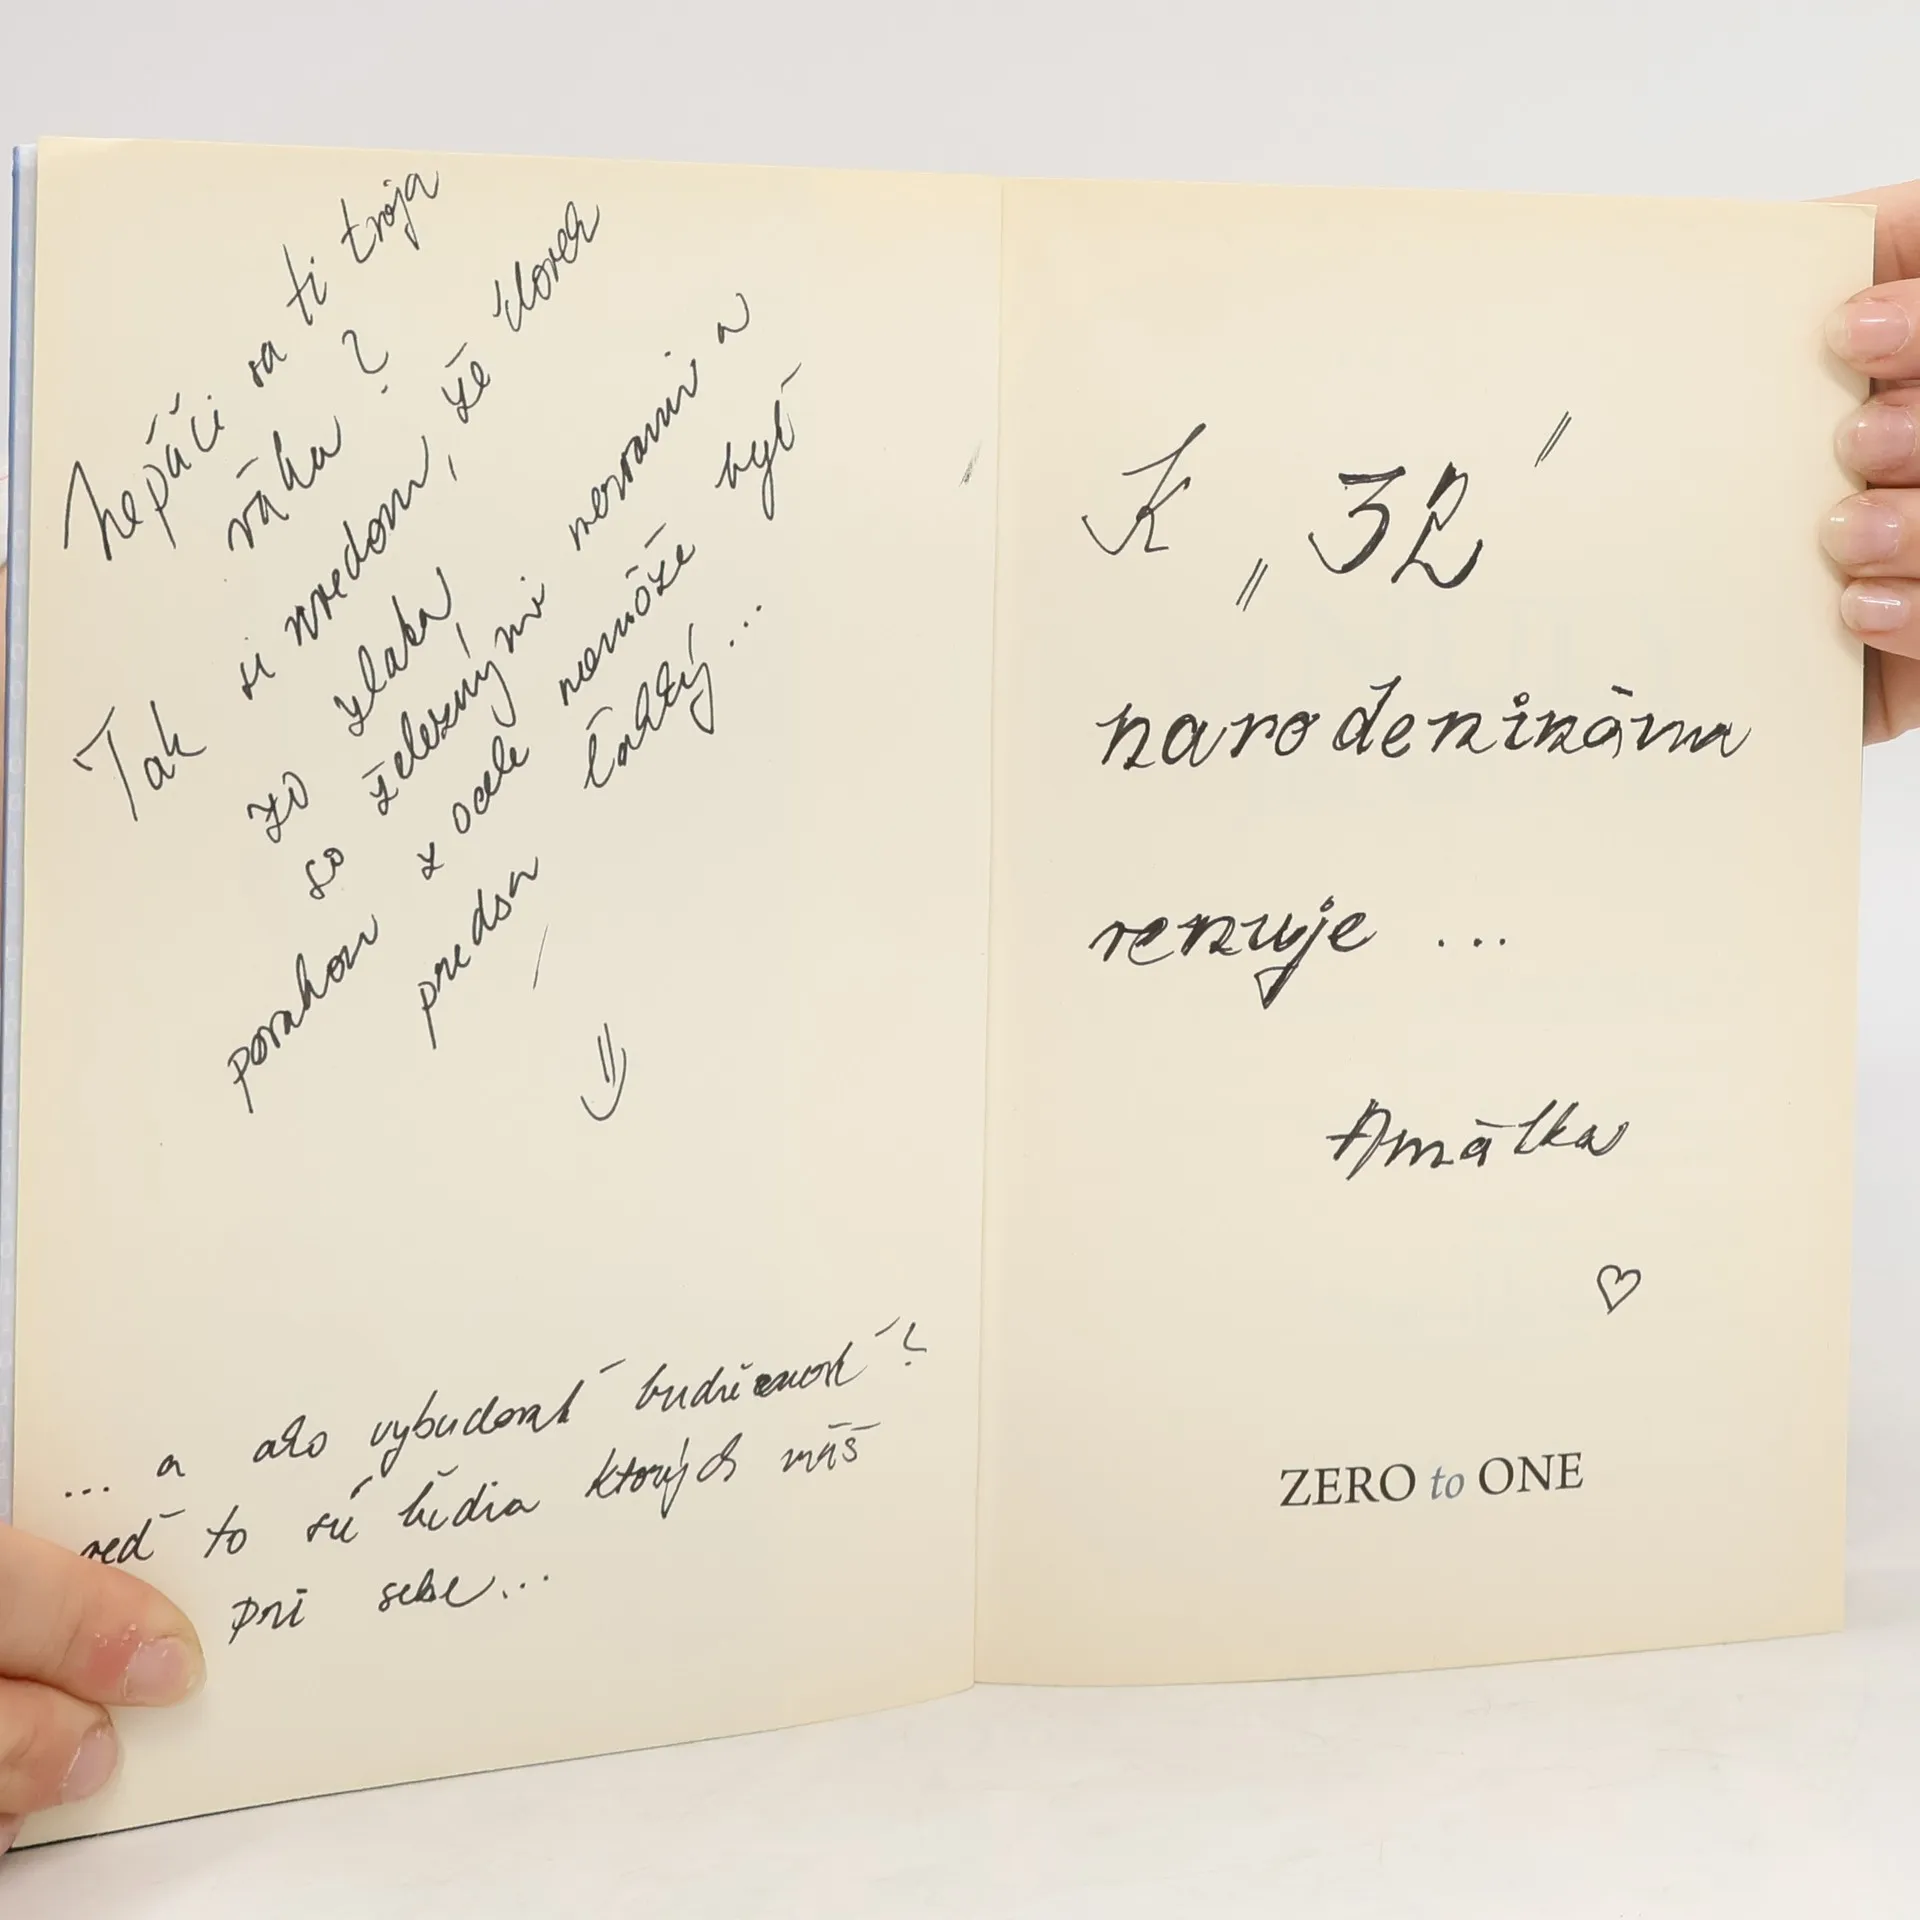 Nepáči sa ti tvoja
váha?
Tak si uvedom, že človek
zo zlata,
so železnými nervami a
povahou z ocele nemôže byť
predsa ľahký...
... a ako vybudovať budúcnosť?
veď to sú ľudia ktorých máš
pri sebe...
K "32"
narodeninám
venuje ...
Amálka
♡
ZERO to ONE